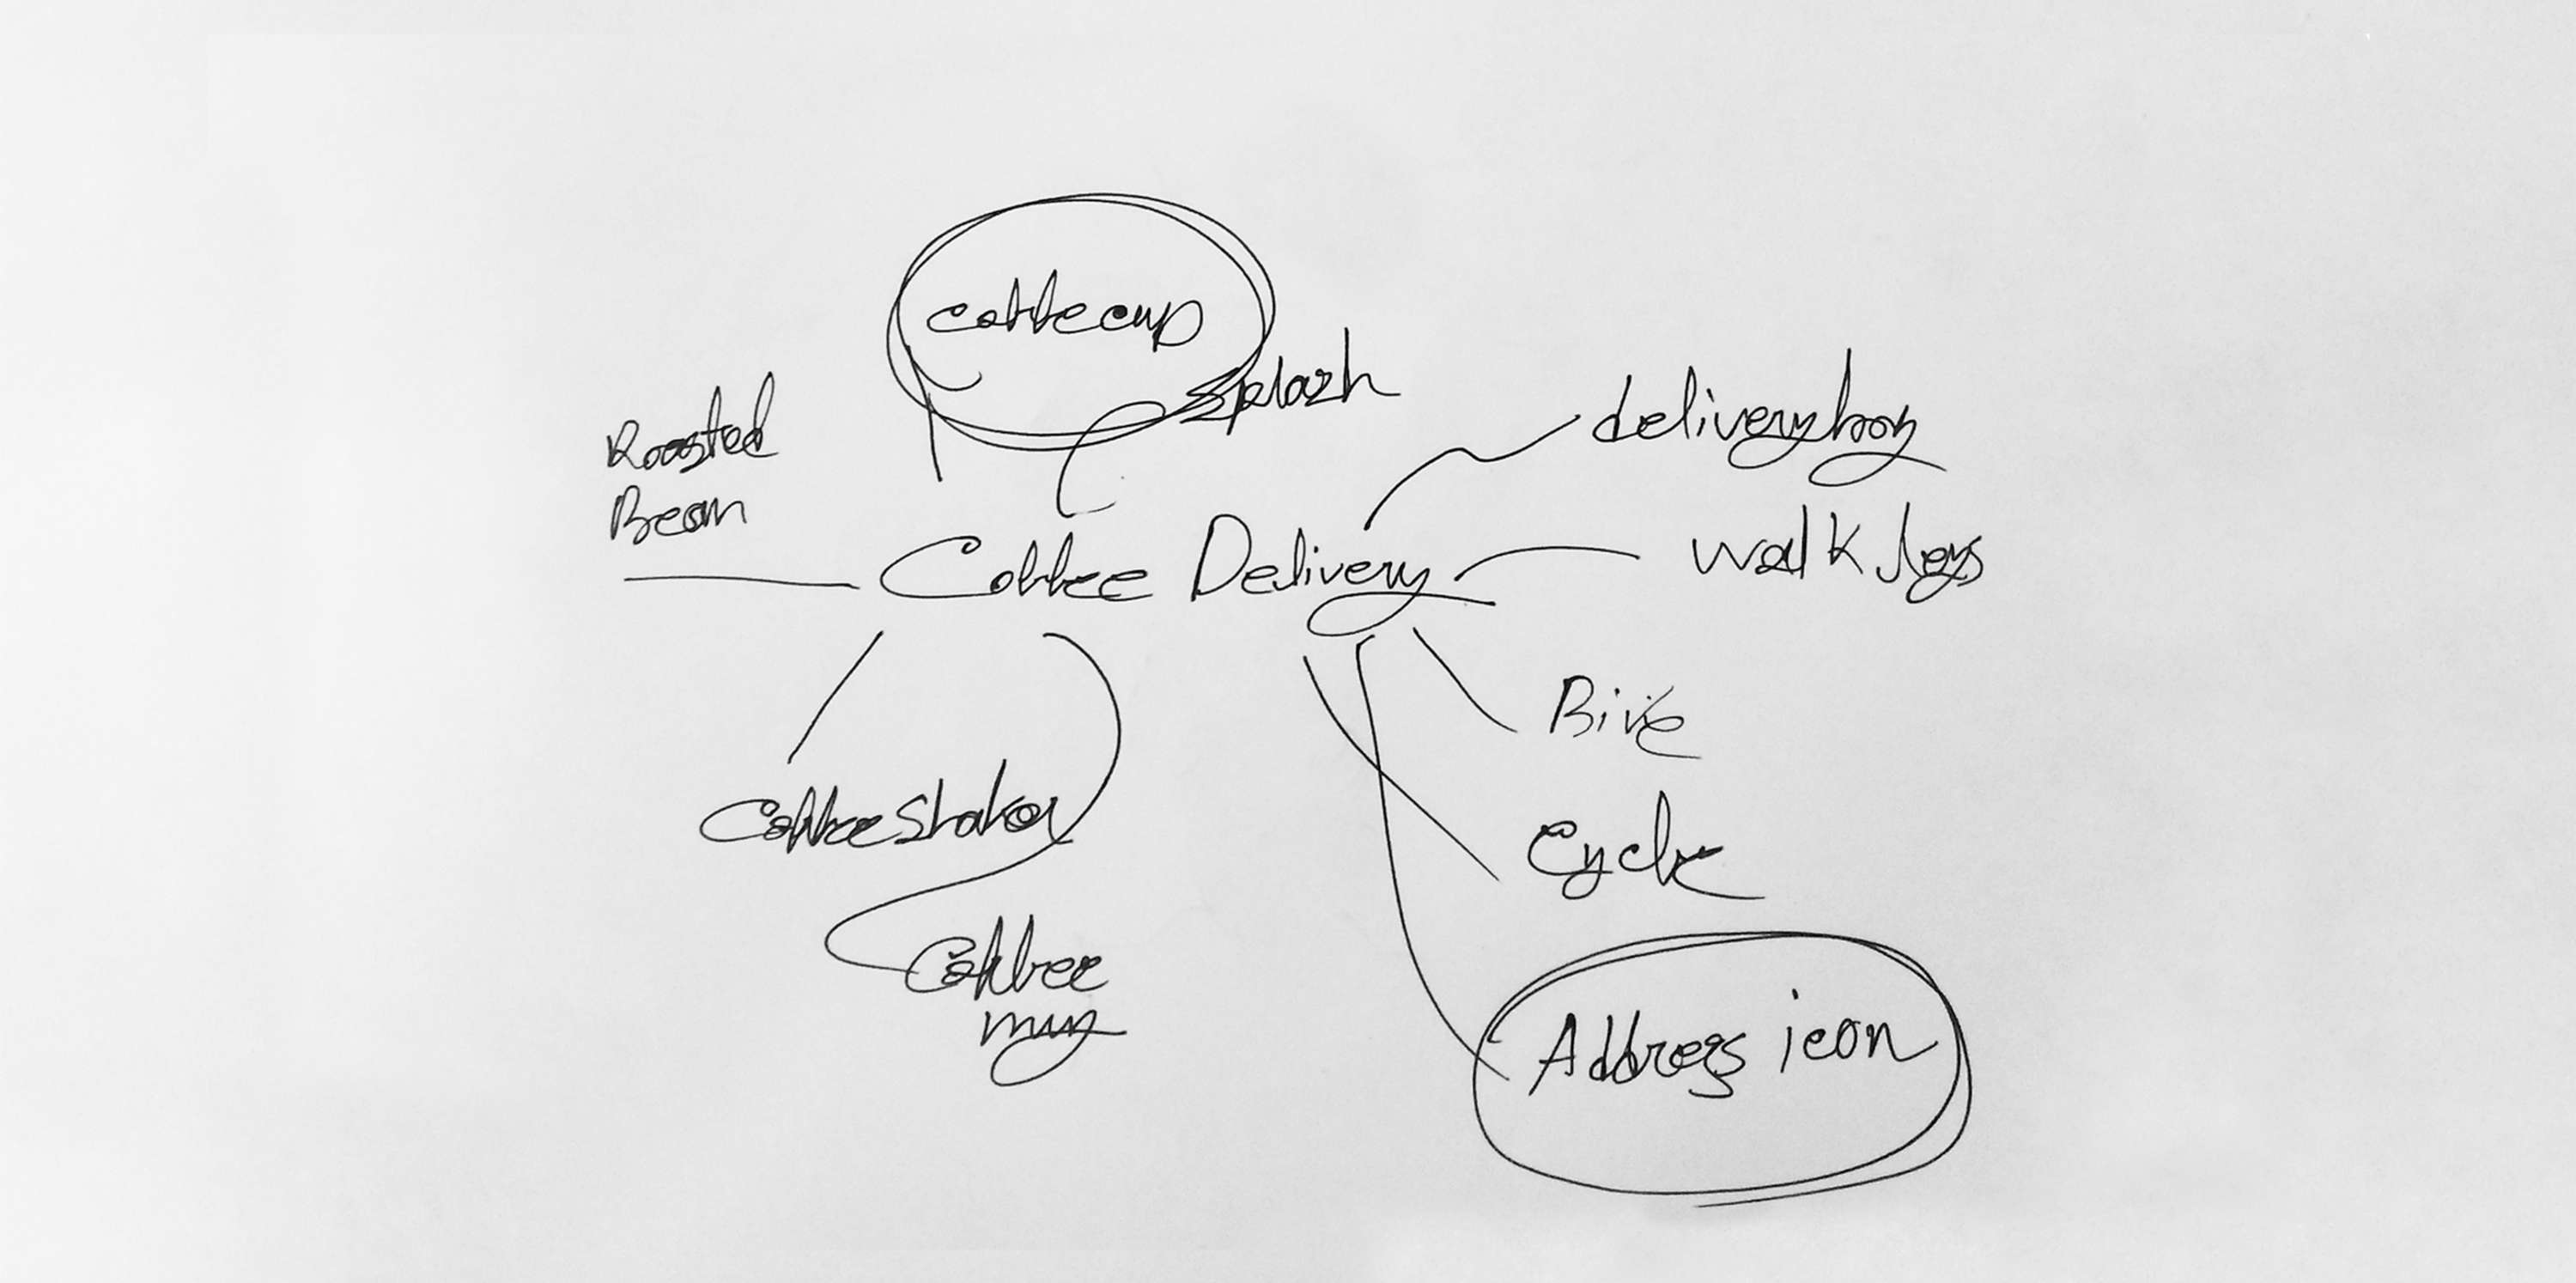 coffee cup
splash
Roasted
Bean
delivery boy
walk legs
Coffee Delivery
Bike
Coffee Shaker
Cycle
Coffee
mug
Address icon